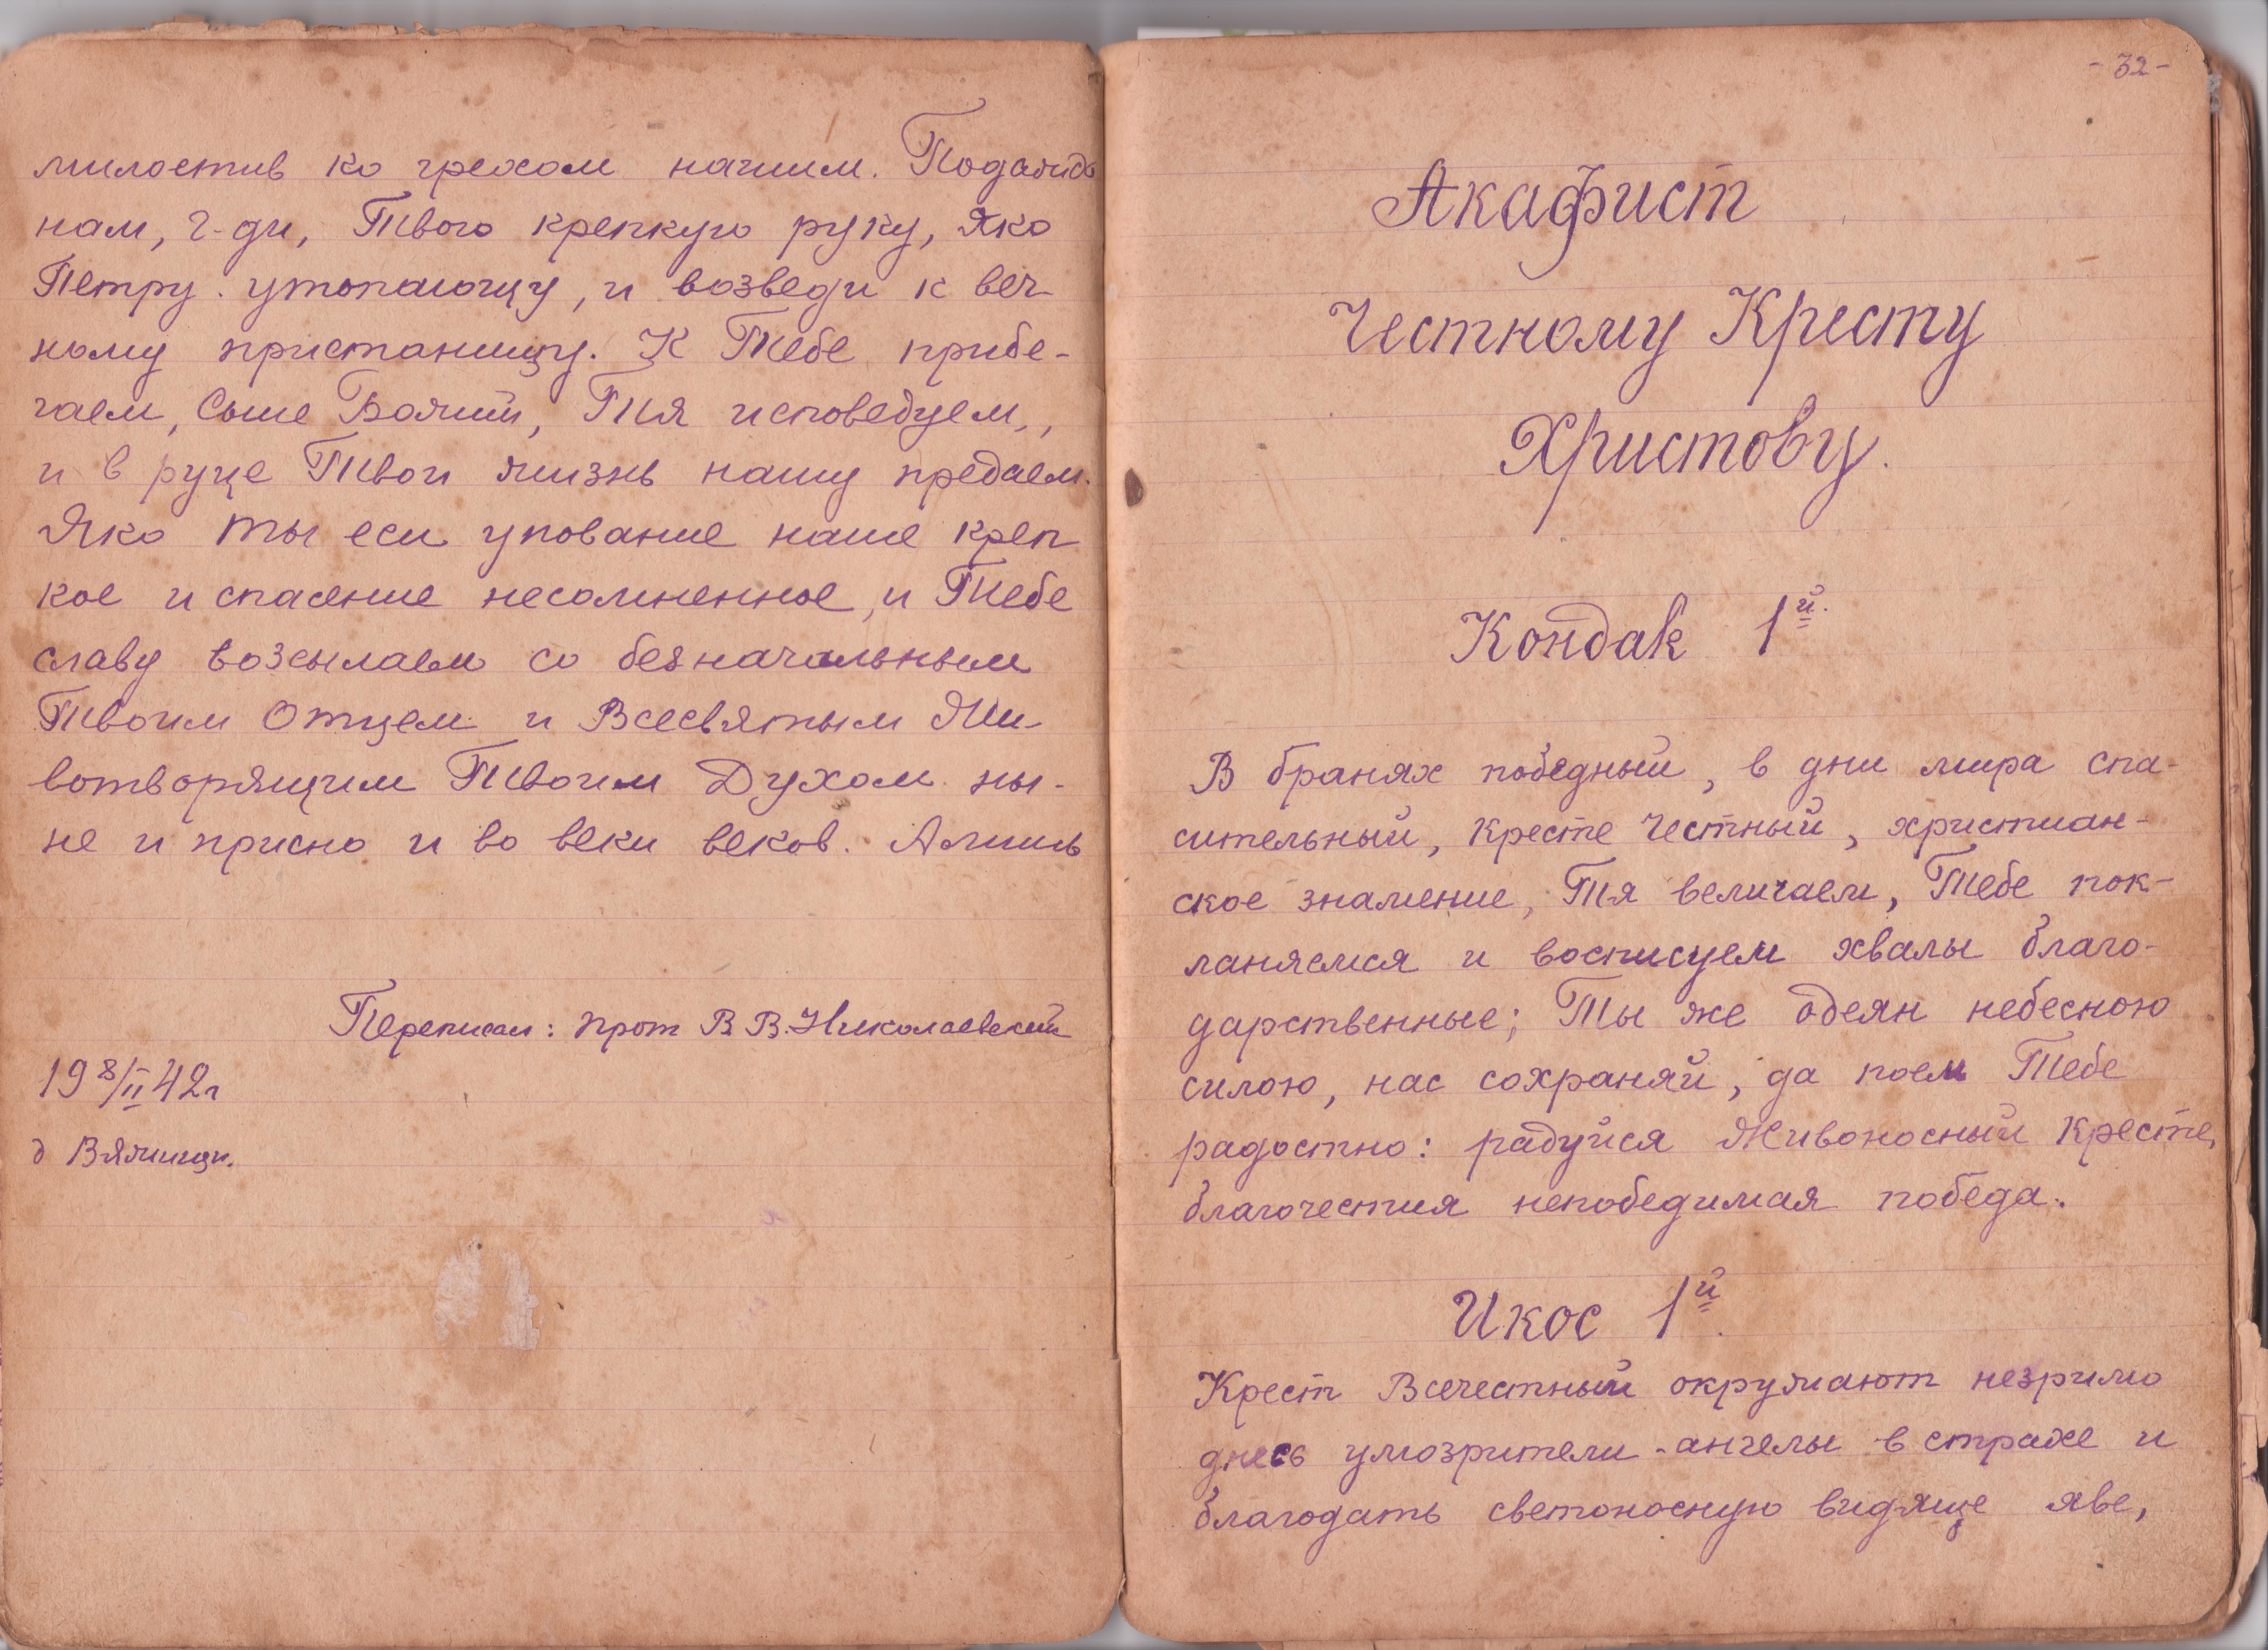 милостив ко грехом нашим. Подаждь
нам, Г-ди, Твою крепкую руку, Яко
Петру утопающу, и возведи к веч-
ному пристанищу. К Тебе прибе-
гаем, Сыне Божий, Тя исповедуем,
и в руце Твои жизнь нашу предаем.
Яко Ты еси упование наше креп
кое и спасение несомненное, и Тебе
славу возсылаем со безначальным
Твоим Отцем и Всесвятым Жи-
вотворящим Твоим Духом ны-
не и присно и во веки веков. Аминь
Переписал: прот В В. Николаевский
19 8/II 42г
д Вяжищи.
-32-
Акафист
Честному Кресту
Христову.
Кондак 1й.
В бранях победный, в дни мира спа-
сительный, Кресте Честный, христиан-
ское знамение, Тя величаем, Тебе пок-
ланяемся и восписуем хвалы благо-
дарственные; Ты же одеян небесною
силою, нас сохраняй, да поем Тебе
радостно: радуйся Живоносный Кресте,
благочестия непобедимая победа.
Икос 1й.
Крест Всечестный окружают незримо
днесь умозрители-ангелы в страхе и
благодать светоносную видяще яве,